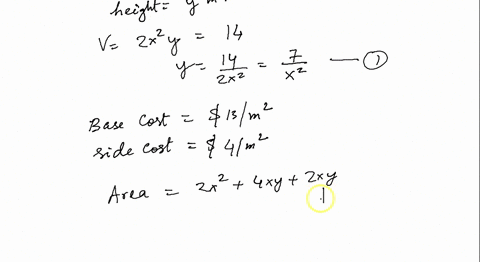 height = y m
V = 2x²y = 14
y = 14/2x² = 7/x² — ①
Base cost = $ 13/m²
side cost = $ 4/m²
Area = 2x² + 4xy + 2xy